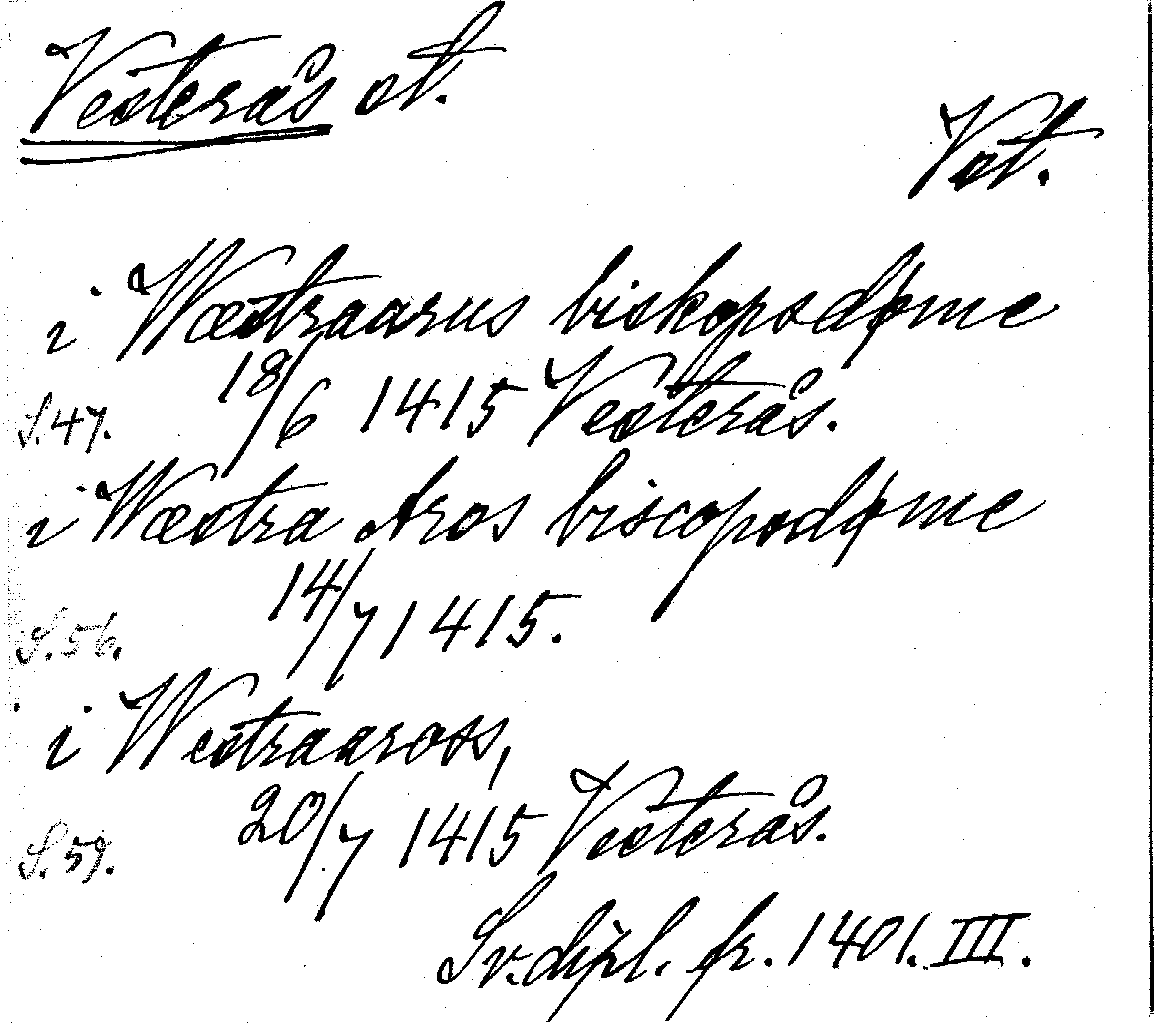 Vesterås st.
Vst.
i Wæstraarus biskopsdøme
S. 47. 18/6 1415 Vesterås.
i Wæstra Aros biscopsdøme
S. 56. 14/7 1415.
i Westraaross,
S. 59. 20/7 1415 Vesterås.
Sv. dipl. fr. 1401. III.